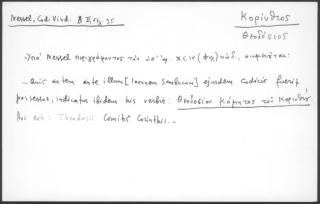 Nessel, Cod. Vind. B II, σχ. 25
Κορίνθιος
Θεοδόσιος
Ὑπὸ Nessel περιγράφοντος τὸν ὑπ' ἀρ. XCIV κώδ., σημειοῦται:
— Quis autem ante illum [Ioannem Sambucum] ejusdem Codicis fuerit
possessor, indicatur ibidem his verbis: Θεοδοσίου Κόμητος τοῦ Κορινθίου
hoc est: Theodosii Comitis Corinthii.—